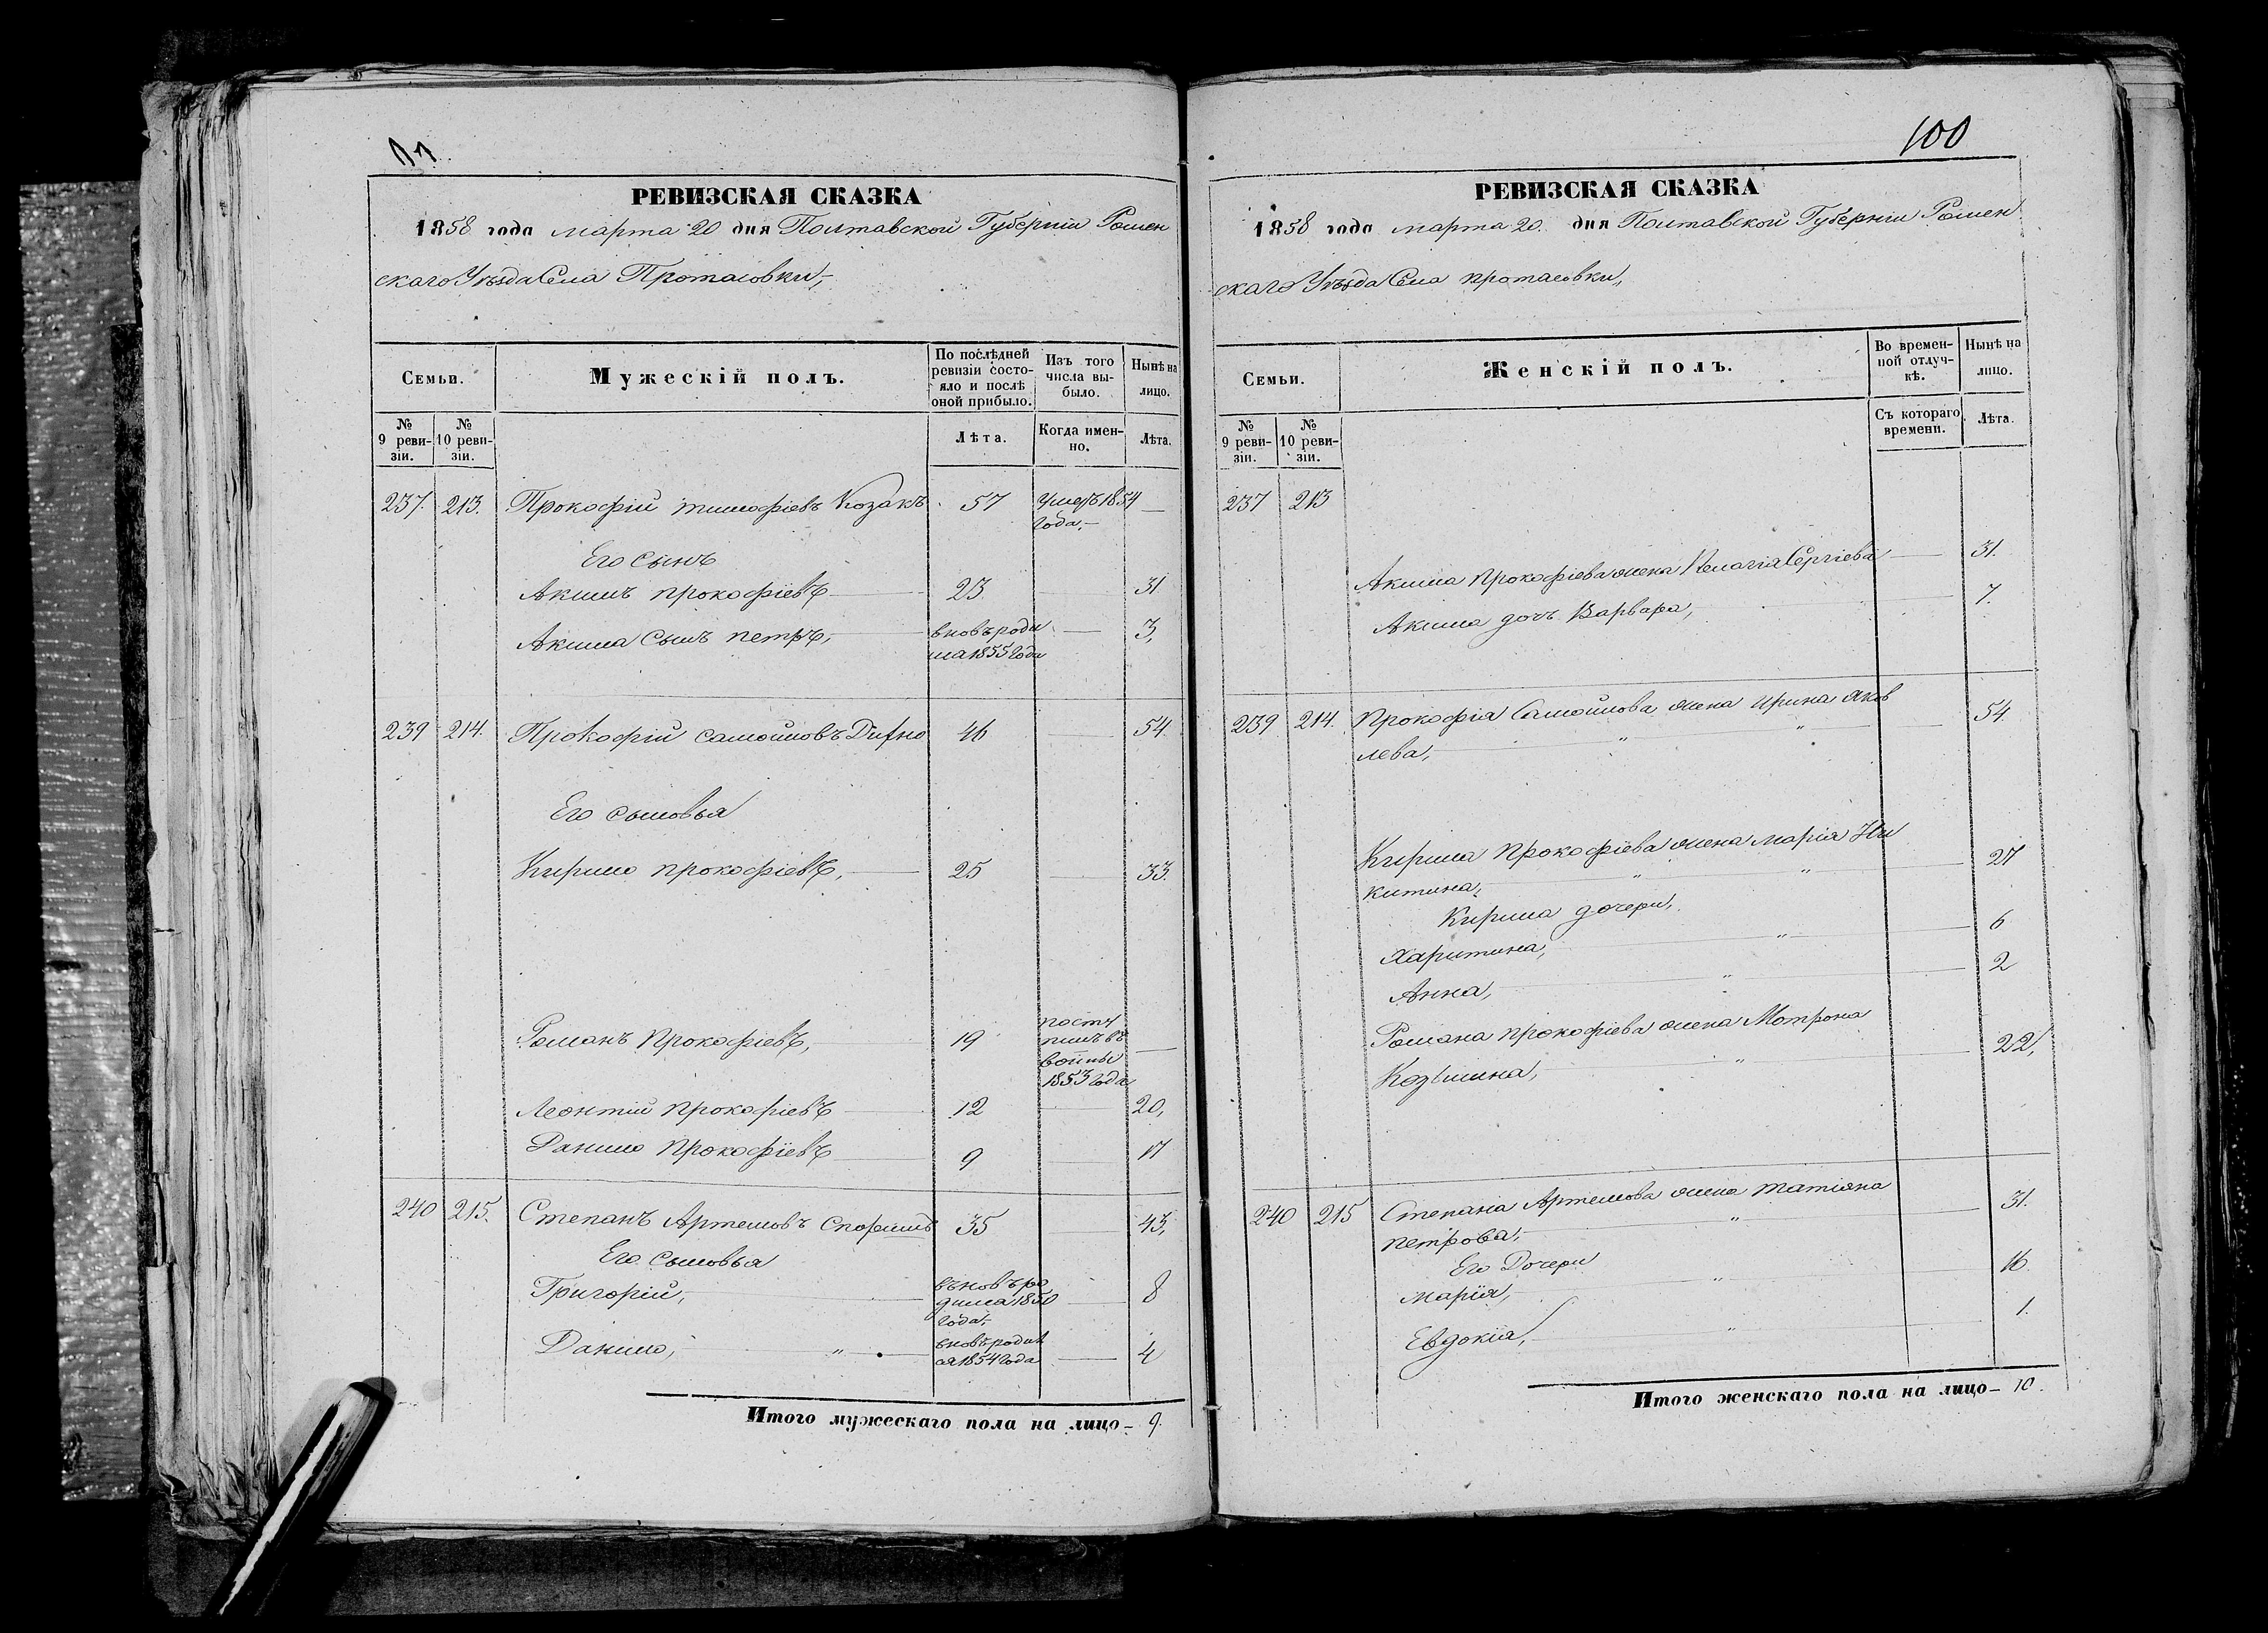 100
РЕВИЗСКАЯ СКАЗКА
1858 года марта 20 дня Полтавской Губерніи Ромен
скаго Уѣзда Села Протасовки,
Семьи.
Мужескій полъ.
По послѣдней ревизіи состояло и послѣ оной прибыло.
Изъ того числа выбыло.
Нынѣ на лицо.
№ 9 ревизіи.
№ 10 ревизіи.
Лѣта.
Когда именно.
Лѣта.
237. 213. Прокофій тимофіевъ Козакъ 57 умеръ 1854 —
года,
Его сынъ
Акимъ прокофіевъ 23 31
Акима сынъ петръ, вновь роди — 3,
лся 1855 года
239 214. Прокофій самойловъ 46 54.
Его сыновья
Кирило прокофіевъ, 25 33.
Романъ Прокофіевъ, 19 посту
пилъ въ —
войны
1853 года
Леонтій прокофіевъ 12 20,
Данило Прокофіевъ 9 17
240 215. Степанъ Артемовъ 35 43,
Его сыновья
Григорій, вновь ро 8
дился 1850
года,
Данило, „ вновь родил 4
ся 1854 года
Итого мужескаго пола на лицо – 9.
РЕВИЗСКАЯ СКАЗКА
1858 года марта 20. дня Полтавской Губерніи Ромен
скаго Уѣзда Села протасовки,
Семьи.
Женскій полъ.
Во временной отлучкѣ.
Нынѣ на лицо.
№ 9 ревизіи.
№ 10 ревизіи.
Съ котораго времени.
Лѣта.
237 213
Акима Прокофіева жена Пелагія Сергіева 31.
Акима дочь Варвара, 7.
239 214. Прокофія Самойлова жена Ирина Яков 54.
лева,
Кирила Прокофіева жена марія Ни 27
китина,
Кирила дочери,
Харитина, 6
Анна, 2
Романа прокофіева жена Мотрона 22,
Козьмина,
240 215 Степана Артемова жена татіяна 31.
петрова,
Его Дочери
марія, 16.
Евдокія, 1.
Итого женскаго пола на лицо – 10.